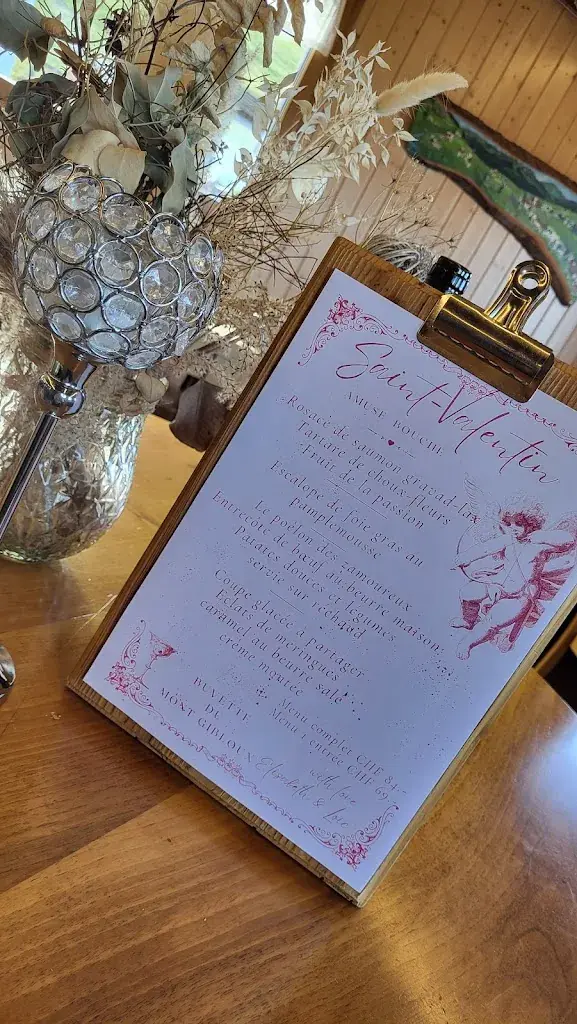 Saint-Valentin
AMUSE BOUCHE
Rosace de saumon grazad-lax
Tartare de choux-fleurs
Fruit de la passion
Escalope de foie gras au
pamplemousse
Le poêlon des zamoureux
Entrecôte de bœuf au beurre maison
Patates douces et légumes
servie sur réchaud
Coupe glacée à partager
Eclats de meringues
caramel au beurre salé
crème moutée
Menu complet CHF 84.-
Menu 1 entrée CHF 69.-
BUVETTE
DU
MONT GIBLOUX
with love
Elisabeth &